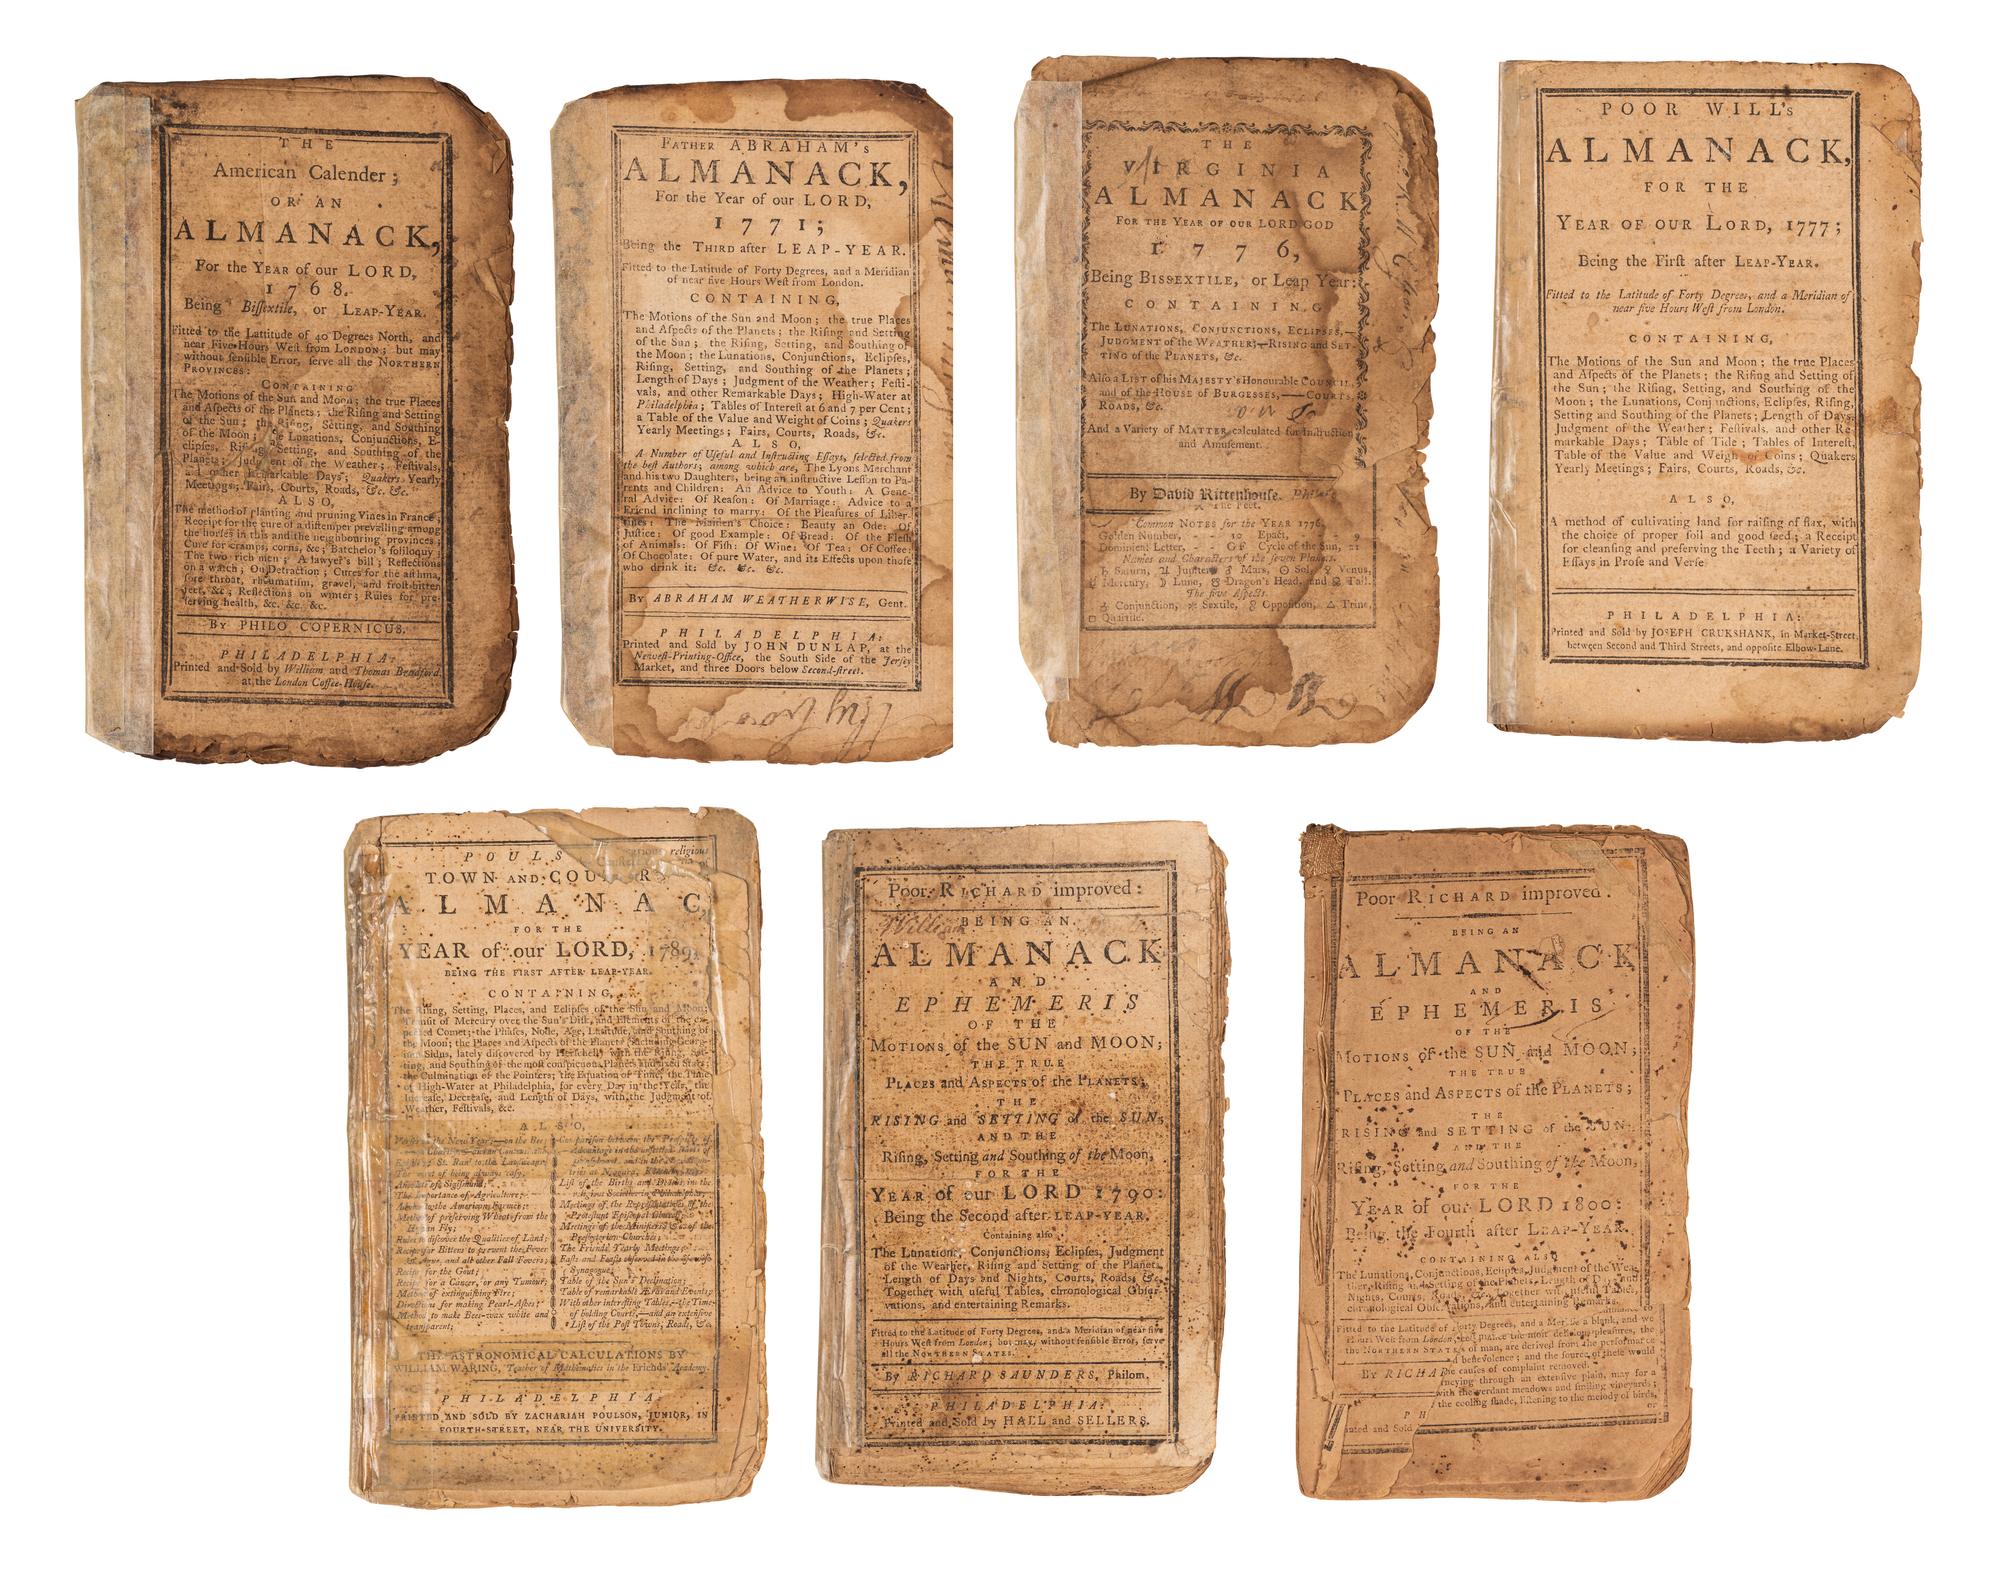 THE
American Calender;
OR AN
ALMANACK,
For the YEAR of our LORD,
1768.
Being Bissextile, or LEAP-YEAR.
Fitted to the Lattitude of 40 Degrees North, and
near Five Hours West from LONDON; but may
without sensible Error, serve all the NORTHERN
PROVINCES:
CONTAINING
The Motions of the Sun and Moon; the true Places
and Aspects of the Planets; the Rising and Setting
of the Sun; the Rising, Setting, and Southing
of the Moon; the Lunations, Conjunctions, E-
clipses, Rising, Setting, and Southing of the
Planets; Judgment of the Weather; Festivals,
and other Remarkable Days; Quakers Yearly
Meetings; Fairs, Courts, Roads, &c. &c.
ALSO,
The method of planting and pruning Vines in France;
Receipt for the cure of a distemper prevailing among
the horses in this and the neighbouring provinces;
Cure for cramps, corns, &c; Batchelor's soliloquy;
The two rich men; A lawyer's bill; Reflections
on a watch; On Detraction; Cures for the asthma,
sore throat, rheumatism, gravel, and frost-bitten
feet, &c; Reflections on winter; Rules for pre-
serving health, &c. &c. &c.
By PHILO COPERNICUS.
PHILADELPHIA:
Printed and Sold by William and Thomas Bradford,
at the London Coffee-House.
FATHER ABRAHAM's
ALMANACK,
For the Year of our LORD,
1771;
Being the THIRD after LEAP-YEAR.
Fitted to the Latitude of Forty Degrees, and a Meridian
of near five Hours West from London.
CONTAINING,
The Motions of the Sun and Moon; the true Places
and Aspects of the Planets; the Rising and Setting
of the Sun; the Rising, Setting, and Southing of
the Moon; the Lunations, Conjunctions, Eclipses,
Rising, Setting, and Southing of the Planets;
Length of Days; Judgment of the Weather; Festi-
vals, and other Remarkable Days; High-Water at
Philadelphia; Tables of Interest at 6 and 7 per Cent;
a Table of the Value and Weight of Coins; Quakers
Yearly Meetings; Fairs, Courts, Roads, &c.
ALSO,
A Number of Useful and Instructing Essays, selected from
the best Authors; among which are, The Lyons Merchant
and his two Daughters, being an instructive Lesson to Pa-
rents and Children: An Advice to Youth: A Gene-
ral Advice: Of Reason: Of Marriage: Advice to a
Friend inclining to marry: Of the Pleasures of Liber-
tines: The Maiden's Choice: Beauty an Ode: Of
Justice: Of good Example: Of Bread: Of the Flesh
of Animals: Of Fish: Of Wine: Of Tea: Of Coffee:
Of Chocolate: Of pure Water, and its Effects upon those
who drink it: &c. &c. &c.
By ABRAHAM WEATHERWISE, Gent.
PHILADELPHIA:
Printed and Sold by JOHN DUNLAP, at the
Newest-Printing-Office, the South Side of the Jersey
Market, and three Doors below Second-street.
THE
VIRGINIA
ALMANACK
FOR THE YEAR OF OUR LORD GOD
1776,
Being BISSEXTILE, or Leap Year:
CONTAINING
The LUNATIONS, CONJUNCTIONS, ECLIPSES,
JUDGMENT of the WEATHER;—RISING and SET-
TING of the PLANETS, &c.
Also a LIST of his MAJESTY's Honourable COUNCIL,
and of the HOUSE of BURGESSES,——COURTS,
ROADS, &c.
And a Variety of MATTER calculated for Instruction
and Amusement.
By David Rittenhouse. Philo.
Common NOTES for the YEAR 1776.
Golden Number, - - 10 Epact, - 9
Dominient Letter, - GF Cycle of the Sun, 21
Names and Characters of the seven Planets.
♄ Saturn, ♃ Jupiter, ♂ Mars, ☉ Sol, ♀ Venus,
☿ Mercury, ☽ Luna, ☊ Dragon's Head, and ☋ Tail.
The five Aspects.
☌ Conjunction, ⚹ Sextile, ☍ Opposition, △ Trine,
□ Quartile.
POOR WILL's
ALMANACK,
FOR THE
YEAR OF OUR LORD, 1777;
Being the First after LEAP-YEAR.
Fitted to the Latitude of Forty Degrees, and a Meridian of
near five Hours West from London.
CONTAINING,
The Motions of the Sun and Moon; the true Places
and Aspects of the Planets; the Rising and Setting of
the Sun; the Rising, Setting, and Southing of the
Moon; the Lunations, Conjunctions, Eclipses, Rising,
Setting and Southing of the Planets; Length of Days,
Judgment of the Weather; Festivals, and other Re-
markable Days; Table of Tide; Tables of Interest,
Table of the Value and Weigh of Coins; Quakers
Yearly Meetings; Fairs, Courts, Roads, &c.
ALSO,
A method of cultivating land for raising of flax, with
the choice of proper soil and good seed; a Receipt
for cleansing and preserving the Teeth; a Variety of
Essays in Prose and Verse
PHILADELPHIA:
Printed and Sold by JOSEPH CRUKSHANK, in Market-Street,
between Second and Third Streets, and opposite Elbow-Lane.
POULS
TOWN AND COUNTRY
ALMANAC,
FOR THE
YEAR of our LORD, 1789,
BEING THE FIRST AFTER LEAP-YEAR.
CONTAINING,
The Rising, Setting, Places, and Eclipses of the Sun and Moon;
Transit of Mercury over the Sun's Disk, and Elements of the ex-
pected Comet; the Phases, Node, Age, Latitude, and Southing of
the Moon; the Places and Aspects of the Planets (including Georg-
ium Sidus, lately discovered by Herschell) with the Rising, Set-
ting, and Southing of the most conspicuous Planets and fixed Stars;
the Culmination of the Pointers; the Equation of Time; the Time
of High-Water at Philadelphia, for every Day in the Year, the
Increase, Decrease, and Length of Days, with the Judgment of
Weather, Festivals, &c.
ALSO,
Verses on the New Year;—on the Bee;
The Importance of Agriculture;
Method of preserving Wheat from the
Hessian Fly;
Rules to discover the Qualities of Land;
Recipe for Bitters to prevent the Fever
and Ague, and all other Fall Fevers;
Recipe for the Gout;
Recipe for a Cancer, or any Tumour;
Method of extinguishing Fire;
Directions for making Pearl-Ashes;
Method to make Bees-wax white and
transparent;
List of the Births and Deaths in the
Meetings of the Representatives of the
Protestant Episcopal Church;
Meetings of the Ministers &c. of the
Presbyterian Churches;
The Friends Yearly Meetings;
Fasts and Feasts observed in the
Synagogue;
Table of the Sun's Declination;
Table of remarkable Æras and Events;
With other interesting Tables,—the Time
of holding Courts,—and an extensive
List of the Post Towns, Roads, &c.
THE ASTRONOMICAL CALCULATIONS BY
WILLIAM WARING, Teacher of Mathematics in the Friends' Academy.
PHILADELPHIA:
PRINTED AND SOLD BY ZACHARIAH POULSON, JUNIOR, IN
FOURTH-STREET, NEAR THE UNIVERSITY.
Poor RICHARD improved:
BEING AN
William
ALMANACK
AND
EPHEMERIS
OF THE
MOTIONS of the SUN and MOON;
THE TRUE
PLACES and ASPECTS of the PLANETS;
THE
RISING and SETTING of the SUN;
AND THE
Rising, Setting and Southing of the Moon,
FOR THE
YEAR of our LORD 1790:
Being the Second after LEAP-YEAR.
Containing also
The Lunations, Conjunctions, Eclipses, Judgment
of the Weather, Rising and Setting of the Planets,
Length of Days and Nights, Courts, Roads, &c.
Together with useful Tables, chronological Obser-
vations, and entertaining Remarks.
Fitted to the Latitude of Forty Degrees, and a Meridian of near five
Hours West from London; but may, without sensible Error, serve
all the NORTHERN STATES.
By RICHARD SAUNDERS, Philom.
PHILADELPHIA:
Printed and Sold by HALL and SELLERS.
Poor RICHARD improved:
BEING AN
ALMANACK
AND
EPHEMERIS
OF THE
MOTIONS of the SUN and MOON;
THE TRUE
PLACES and ASPECTS of the PLANETS;
THE
RISING and SETTING of the SUN;
AND THE
Rising, Setting and Southing of the Moon,
FOR THE
YEAR of our LORD 1800:
Being the Fourth after LEAP-YEAR.
CONTAINING ALSO
The Lunations, Conjunctions, Eclipses, Judgment of the Wea-
ther, Rising and Setting of the Planets, Length of Days and
Nights, Courts, Roads, &c. Together with useful Tables,
chronological Observations, and entertaining Remarks.
Fitted to the Latitude of Forty Degrees, and a Mer
Hours West from London,
the NORTHERN STATES
of man, are derived from the performance
benevolence; and the source of these would
By RICHA
the causes of complaint removed.
neying through an extensive plain, may for a
with the verdant meadows and smiling vineyards;
the cooling shade, listening to the melody of birds,
or
PH
inted and Sold